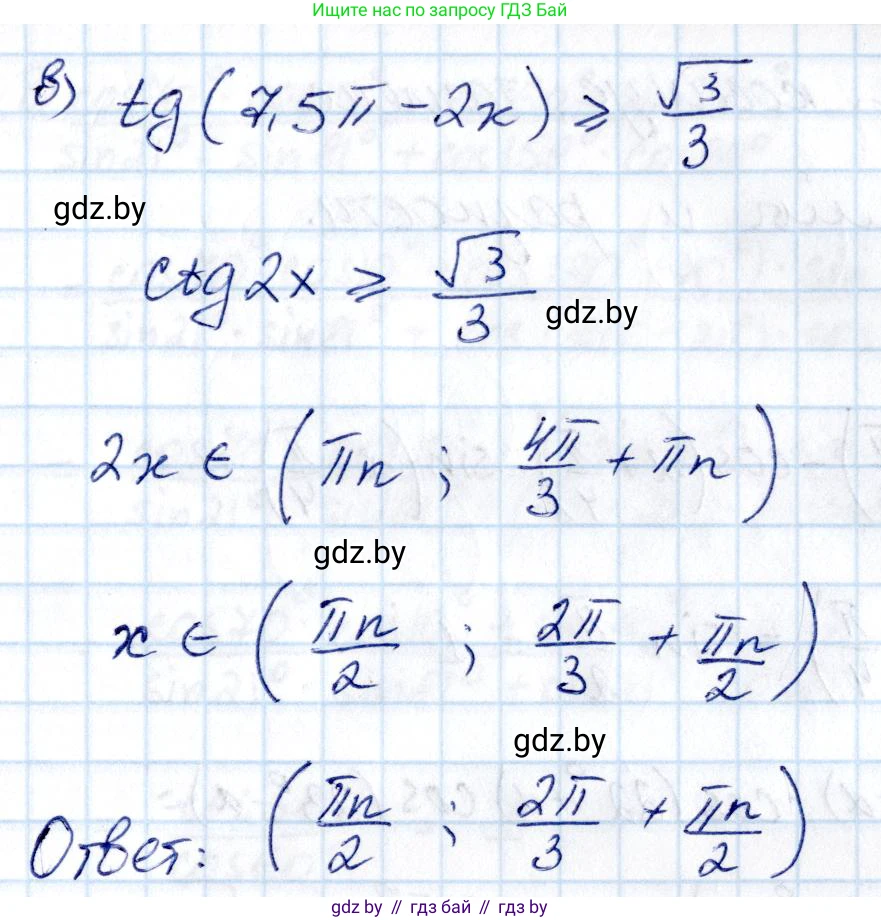 Ищите нас по запросу ГДЗ Бай
в) tg(7,5π - 2x) ≥ √3/3
gdz.by
ctg2x ≥ √3/3
gdz.by
2x ∈ (πn ; 4π/3 + πn)
gdz.by
x ∈ (πn/2 ; 2π/3 + πn/2)
gdz.by
Ответ: (πn/2 ; 2π/3 + πn/2)
gdz.by // гдз бай // gdz.by